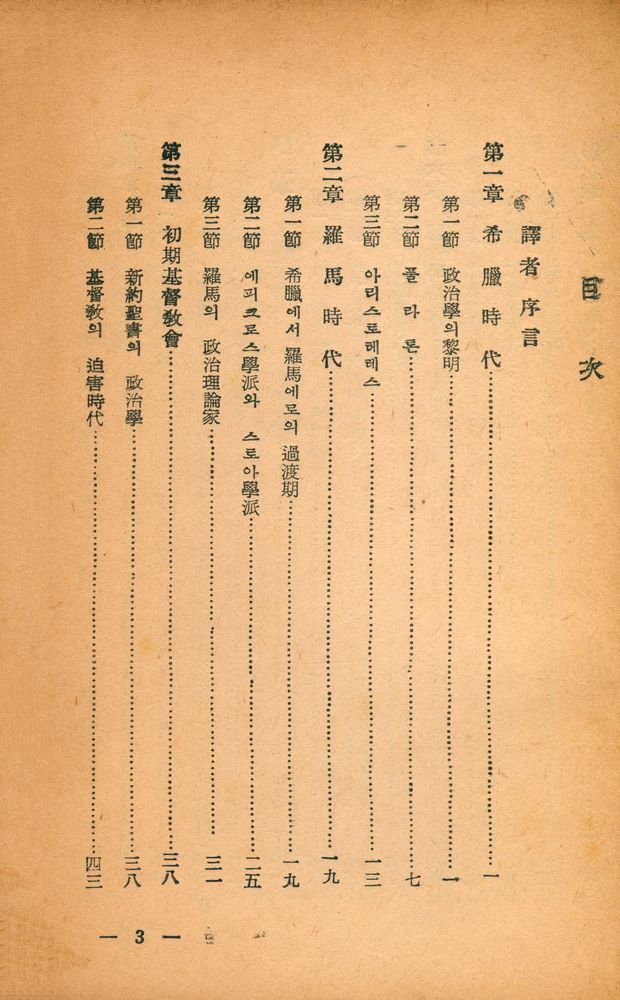 目次
譯者序言
第一章 希臘時代 一
第一節 政治學의黎明 一
第二節 풀라톤 七
第三節 아리스토테레스 一三
第二章 羅馬時代 一九
第一節 希臘에서 羅馬에로의 過渡期 一九
第二節 에피크로스學派와 스토아學派 二五
第三節 羅馬의 政治理論家 三一
第三章 初期基督敎會 三八
第一節 新約聖書의 政治學 三八
第二節 基督敎의 迫害時代 四三
— 3 —